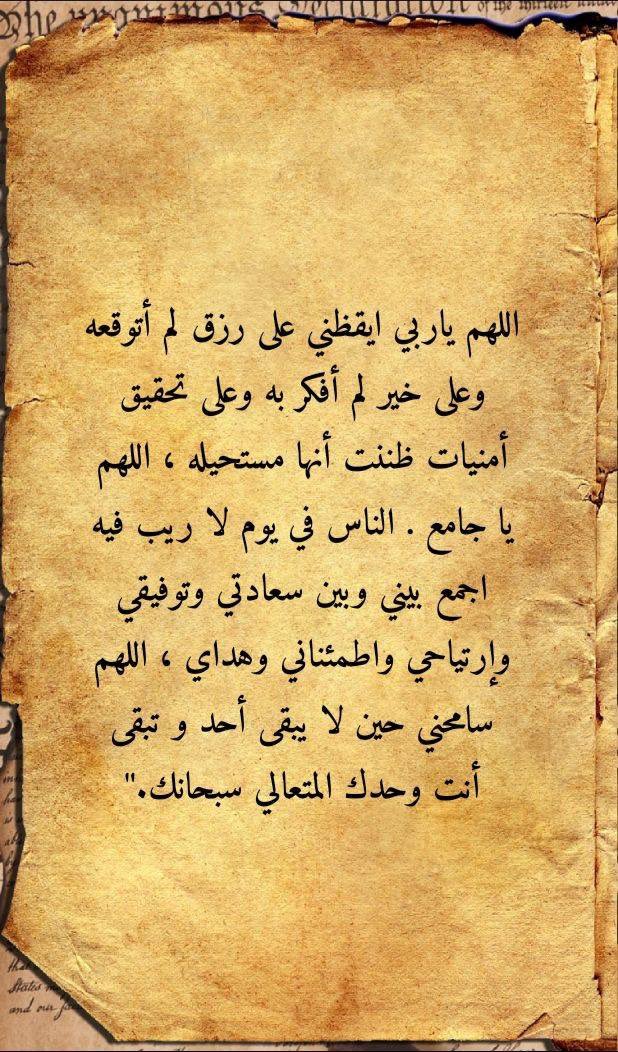 The unanimous Declaration of the thirteen united
اللهم ياربي ايقظني على رزق لم أتوقعه
وعلى خير لم أفكر به وعلى تحقيق
أمنيات ظننت أنها مستحيله ، اللهم
يا جامع . الناس في يوم لا ريب فيه
اجمع بيني وبين سعادتي وتوفيقي
وإرتياحي واطمئناني وهداي ، اللهم
سامحني حين لا يبقى أحد و تبقى
أنت وحدك المتعالي سبحانك."
that
States
and our